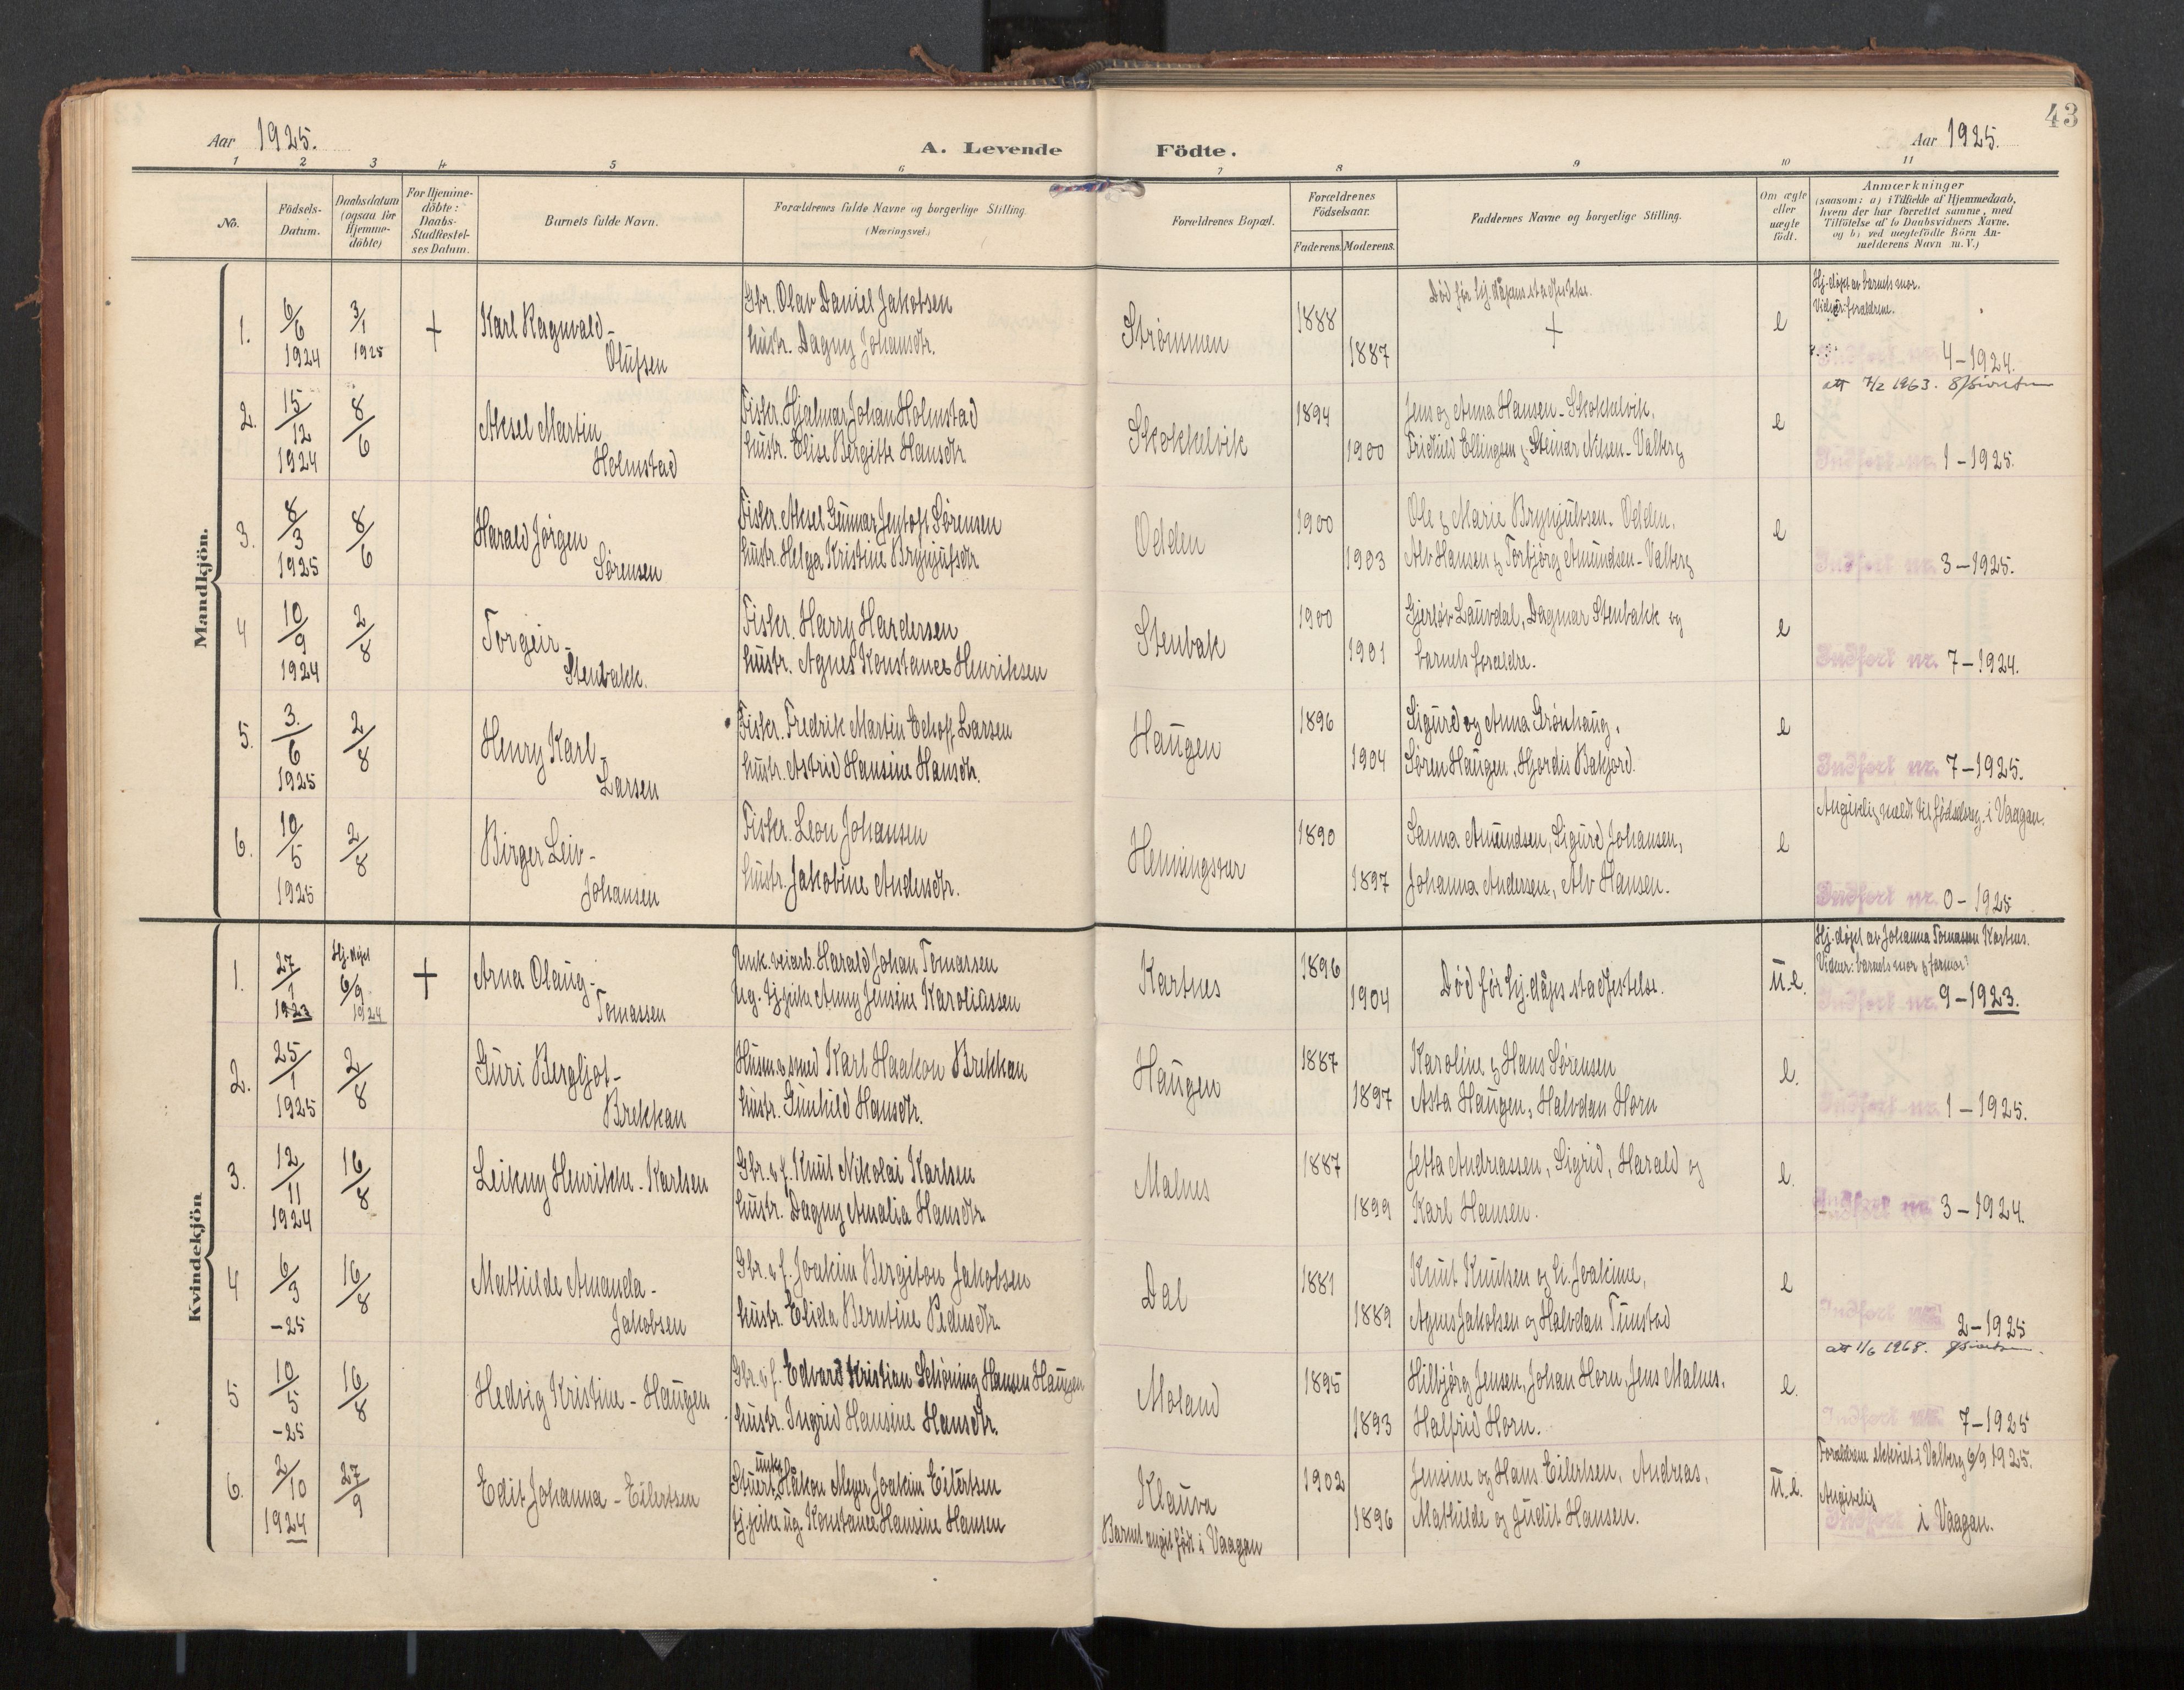 43
Aar 1925.
A. Levende Födte.
Aar 1925.
1 2 3 4 5 6 7 8 9 10 11
No.
Födsels-
Datum.
Daabsdatum
(ogsaa for
Hjemme-
döbte)
For Hjemme-
döbte:
Daabs-
Stadfæstel-
ses Datum.
Barnets fulde Navn.
Forældrenes fulde Navne og borgerlige Stilling.
(Næringsvei.)
Forældrenes Bopæl.
Forældrenes
Födselsaar.
Faderens. Moderens.
Faddernes Navne og borgerlige Stilling.
Om ægte
eller
uægte
födt.
Anmærkninger
(saasom: a) i Tilfælde af Hjemmedaab,
hvem der har forrettet samme, med
Tilföielse af to Daabsvidners Navne.
og b) ved uægtefödte Börn An-
melderens Navn m. V.)
Mandkjön.
1. 6/6 1924 3/1 1925 + Karl Ragnvald-
Olufsen
Gbr. Olav Daniel Jakobsen
hustr. Dagny Johansdtr.
Strømmen 1888 1887
Død før hj.dåpens stadfestelse.
+
e
Hj.døpt av barnets mor.
Vidner: foreldrene.
4-1924.
att 7/2 1963.
2. 15/12 1924 8/6 Aksel Martin
Holmstad
Fisker. Hjalmar Johan Holmstad
hustr. Elise Bergitte Hansdtr
Skokkelvik 1894 1900
Jens og Anna Hansen - Skokkelvik.
Fridhild Ellingsen & Steinar Nilsen - Valberg
e
Indført nr. 1-1925.
3. 8/3 1925 8/6 Harald Jørgen
Sørensen
Fisker. Aksel Gunnar Jentoft Sørensen
hustr. Helga Kristine Brynjulfsdtr
Odden 1900 1903
Ole & Marie Brynjulvsen. Odden.
Alv Hansen & Torbjørg Amundsen - Valberg
e
Indført nr. 3-1925.
4 10/9 1924 2/8 Torgeir-
Stenbakk.
Fisker. Harry Hardersen
hustr. Agnes Konstance Henriksen
Stenbak 1900 1901
Gjerløv Lauvdal, Dagmar Stenbakk og
barnets foreldre.
e
Indført nr. 7-1924.
5. 3./6 1925 2/8 Henry Karl-
Larsen
Fisker. Fredrik Martin Eehoff Larsen
hustr. Astrid Hansine Hansdtr.
Haugen 1896 1904
Sigurd og Anna Grönhaug.
Søren Haugen, Hjordis Bakjord.
e
Indført nr. 7-1925.
6. 10/5 1925 2/8 Birger Leiv-
Johansen
Fisker. Leon Johansen
hustr. Jakobine Andersdtr.
Henningsvær 1890 1897
Sanna Amundsen, Sigurd Johansen,
Johanna Andersen, Alv Hansen.
e
Angivelig meldt til fødselsreg. i Vaagan.
Indført nr. 0-1925
Kvindekjön
1. 27/1 1923 Hj. døpt 6/9 1924 + Arna Olaug-
Tomassen
Unk. veiarb. Harald Johan Tomassen
Ug. tj.pike Anny Jensine Karoliassen
Kartnes 1896 1904
Død før hj.dåps stadfestelse.
u.e.
Hj.døpt av Johanna Tomassen Kartnes.
Vidner: barnets mor & farmor?
Indført nr. 9-1923.
2. 25/1 1925 2/8 Guri Bergljot-
Brekkan
Husm. & smed Karl Haakon Brekkan
hustr. Gunhild Hansdtr.
Haugen 1887 1897
Karoline & Hans Sørensen
Asta Haugen, Halvdan Horn
e.
Indført nr. 1-1925.
3. 12/11 1924 16/8 Leikny Henrikke - Karlsen
Gbr. & f. Knut Nikolai Karlsen
hustr. Dagny Amalia Hansdtr
Malnes 1887 1899
Jetta Andreassen, Sigrid, Harald og
Karl Hansen.
e.
Indført nr. 3-1924.
4 6/3 -25 16/8 Mathilde Amanda-
Jakobsen
Gbr. & f. Joakim Bergiton Jakobsen
hustr. Elida Berntine Pedersdtr.
Dal 1881 1889
Knut Knutsen og h. Joakime,
Agnes Jakobsen og Halvdan Tunstad
e
Indført nr. 2-1925
att 1/6 1968.
5 10/5 -25 16/8 Hedvig Kristine - Haugen
Gbr. & f. Edvard Kristian Schöning Hansen Haugen
hustr. Ingrid Hansine Hansdtr.
Moland 1895 1893
Hilbjørg Jensen, Johan Horn, Jens Malnes.
Halfrid Horn.
e.
Indført nr. 7-1925
6. 2/10 1924 27/9 Edit Johanna - Eilertsen
Stuert unk. Håkon Meyer Joakim Eilertsen
tj.pike ug. Konstance Hansine Hansen
Klauva
Barnet angit født i Vaagan
1902 1896
Jensine og Hans Eilertsen, Andreas,
Mathilde og Judit Hansen.
u.e.
Foreldrene ekteviet i Valberg 6/9 1925.
Angivelig
Indført i Vaagan.